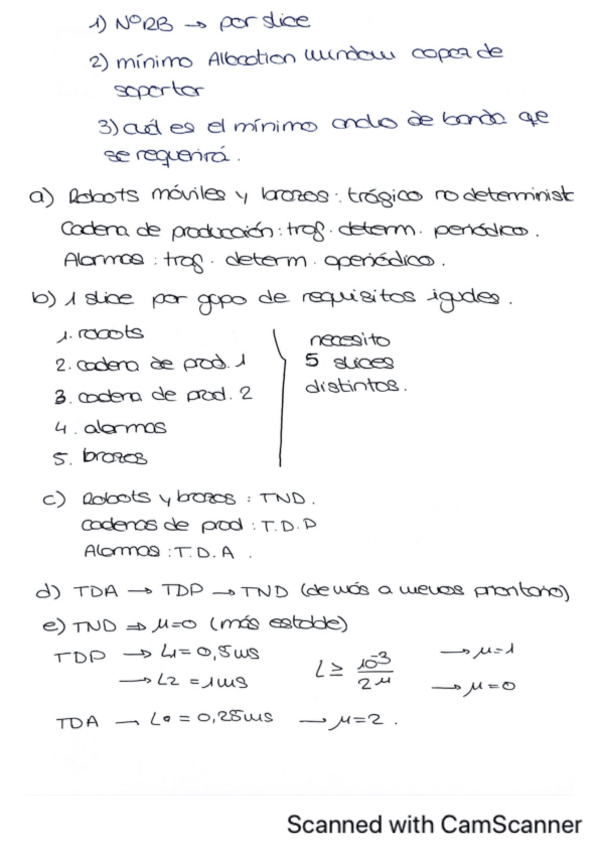 1) NºRB → por slice
2) mínimo Allocation Window capaz de
soportar
3) cuál es el mínimo ancho de banda que
se requerirá.
a) Robots móviles y brazos: tráfico no determinist
Cadena de producción: traf. determ. periódico.
Alarmas: traf. determ. aperiódico.
b) 1 slice por grupo de requisitos iguales.
1. robots
2. cadena de prod. 1
3. cadena de prod. 2
4. alarmas
5. brazos
necesito
5 slices
distintos.
c) Robots y brazos: TND.
cadenas de prod: T.D.P
Alarmas: T.D.A.
d) TDA → TDP → TND (de más a menos prioritario)
e) TND ⇒ μ=0 (más estable)
TDP → L1=0,5ms L ≥ 10^-3 / 2^μ → μ=1
→ L2 = 1ms → μ=0
TDA → L0 = 0,25ms → μ=2.
Scanned with CamScanner